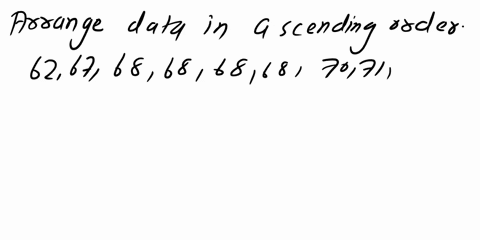 Arrange data in ascending order.
62, 67, 68, 68, 68, 68, 70, 71,